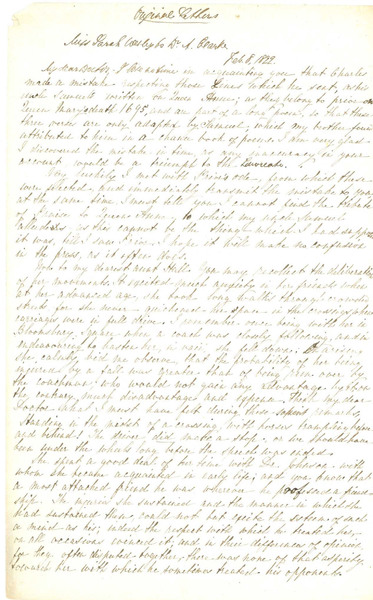 Original Letters
Miss Sarah Wesley to Dr. A. Clarke
Feb 8, 1822.
My dear Doctor, I lose no time in acquainting you that Charles
made a mistake respecting those lines which he sent, as his
uncle Samuel's written on Queen Anne; as they belong to prior on
Queen Mary's death 1695, and are part of a long poem, so that these
three verses are only adapted by Samuel, which my brother found
attributed to him in a church book of poems. I am very glad
I discovered the mistake in time, for an inaccuracy in your
account would be a triumph to the Laureate.
Very luckily I met with Prior's ode from which these
were selected, and immediately transmit the mistake to you
at the same time I must tell you I cannot find the tribute
of Praise to Queen Anne, to which my uncle Samuel
, as this cannot be the Though which I had supposed
it was, till I saw Prior. I hope it will make no confusion
in the press, as it often does.
Now to my dearest aunt Hall. You may recollect the deliberation
of her movements. It excited much anxiety in her friends when
at her advanced age, she took long walks through crowded
streets for she never quickened her step in the crossings when
carriages were in full drive. I remember once being with her in
Bloomsbury Square when a coach was closely following, and in
endeavouring to hasten her, in vain, she sat down
she calmly bid me observe that the probability of her being
injured by a fall was greater than of being run over by
the coachman, who would not gain any advantage by it on
the contrary, much disadvantage and expence. Think my dear
Doctor what I must have felt during these remarks
standing in the midst of a crossing, with horses trampling before
and behind! The driver did make a stop, or we should have
been under the wheels long before the speech was ended.
She spent a good deal of her time with Dr. Johnson, with
whom she became acquainted in early life, and you know that
a most attached friend he was wherever he professed a friend-
ship. The wounds she sustained and the manner in which she
had sustained them could not but excite the esteem of such
a mind as his; indeed the respect with which he treated her
on all occasions evinced it, and in their differences of opinion
for they often disputed together, there was none of that austerity
towards her with which he sometimes treated his opponents.